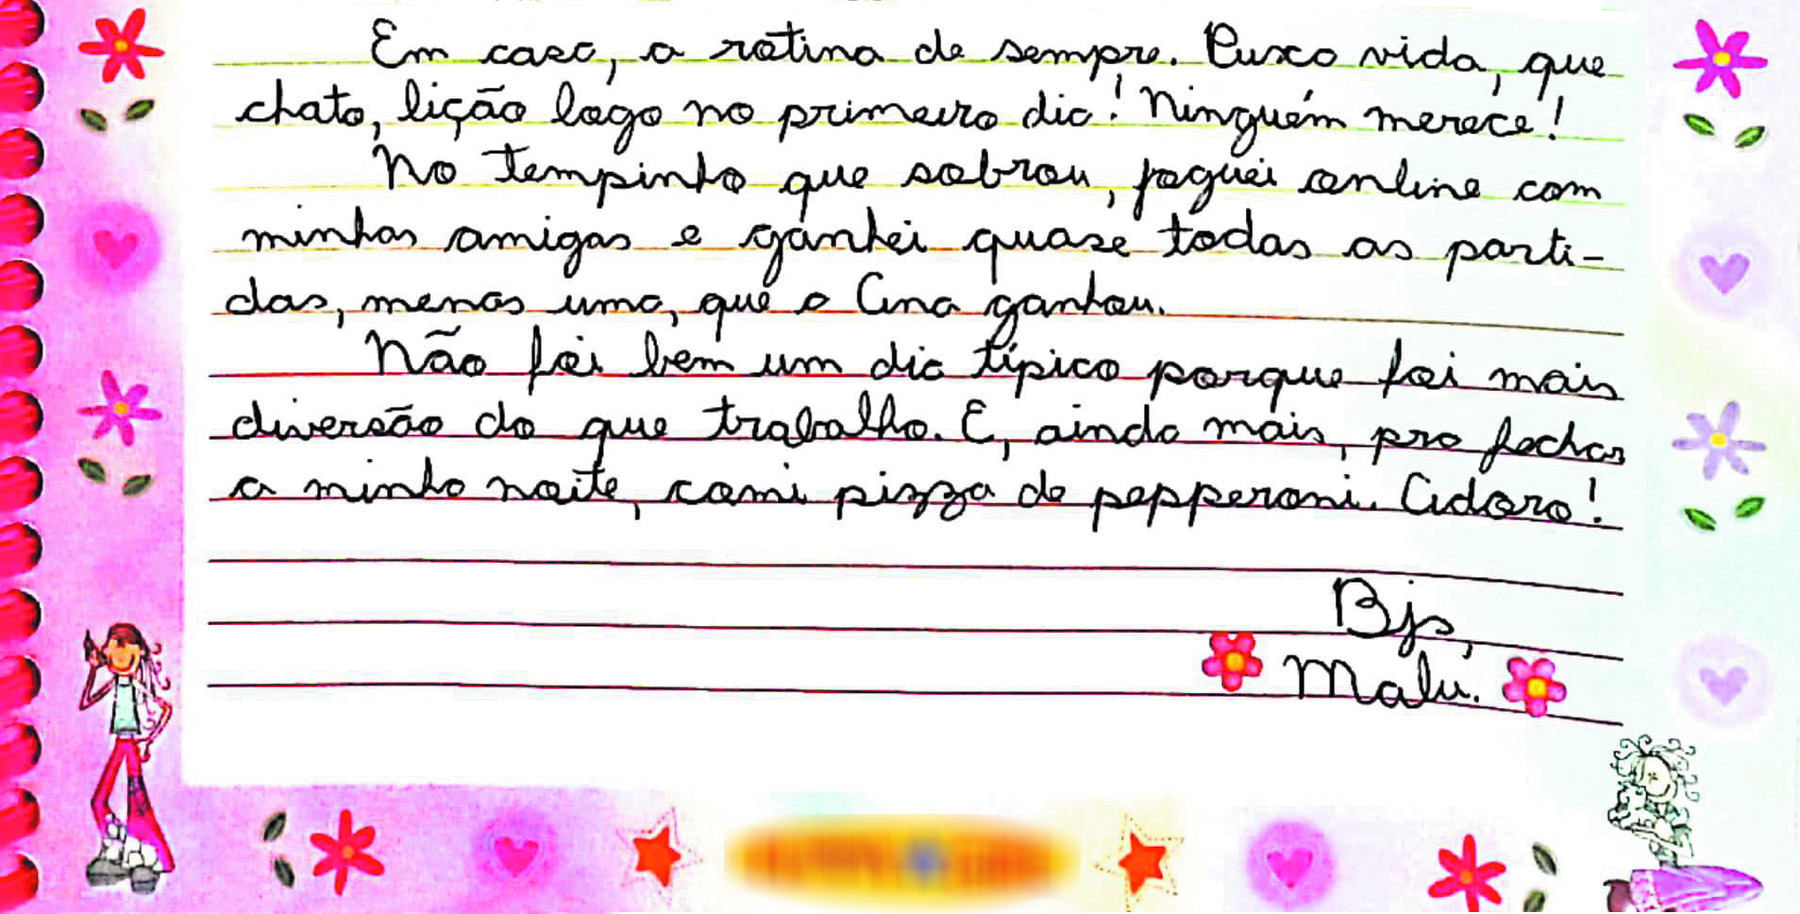 Em casa, a rotina de sempre. Puxa vida, que
chato, lição logo no primeiro dia! Ninguém merece!
No tempinho que sobrou, joguei online com
minhas amigas e ganhei quase todas as parti-
das, menos uma, que a Ana ganhou.
Não foi bem um dia típico porque foi mais
diversão do que trabalho. E, ainda mais, pra fechar
a minha noite, comi pizza de pepperoni. Adoro!
Bjs,
Malu.